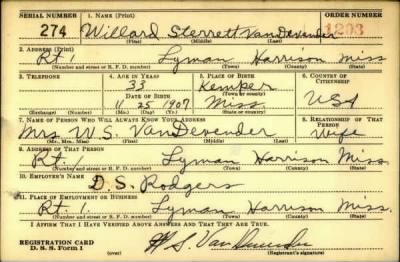 SERIAL NUMBER 1. NAME (Print) ORDER NUMBER
274 Willard Sterrett VanDevender 1203
(First) (Middle) (Last)
2. ADDRESS (Print)
Rt. 1 Lyman Harrison Miss
(Number and street or R. F. D. number) (Town) (County) (State)
3. TELEPHONE 4. AGE IN YEARS 5. PLACE OF BIRTH 6. COUNTRY OF CITIZENSHIP
33 Kemper
DATE OF BIRTH (Town or county)
11 25 1907 Miss. USA
(Exchange) (No.) (Mo.) (Day) (Yr.) (State or country)
7. NAME OF PERSON WHO WILL ALWAYS KNOW YOUR ADDRESS 8. RELATIONSHIP OF THAT PERSON
Mrs. W. S. VanDevender Wife
(Mr., Mrs., Miss) (First) (Middle) (Last)
9. ADDRESS OF THAT PERSON
Rt. 1. Lyman Harrison Miss.
(Number and street or R. F. D. number) (Town) (County) (State)
10. EMPLOYER'S NAME
D. S. Rodgers
11. PLACE OF EMPLOYMENT OR BUSINESS
Rt. 1. Lyman Harrison Miss.
(Number and street or R. F. D. number) (Town) (County) (State)
I AFFIRM THAT I HAVE VERIFIED ABOVE ANSWERS AND THAT THEY ARE TRUE.
REGISTRATION CARD
D. S. S. Form 1 (over) W S. VanDevender
(Registrant's signature)